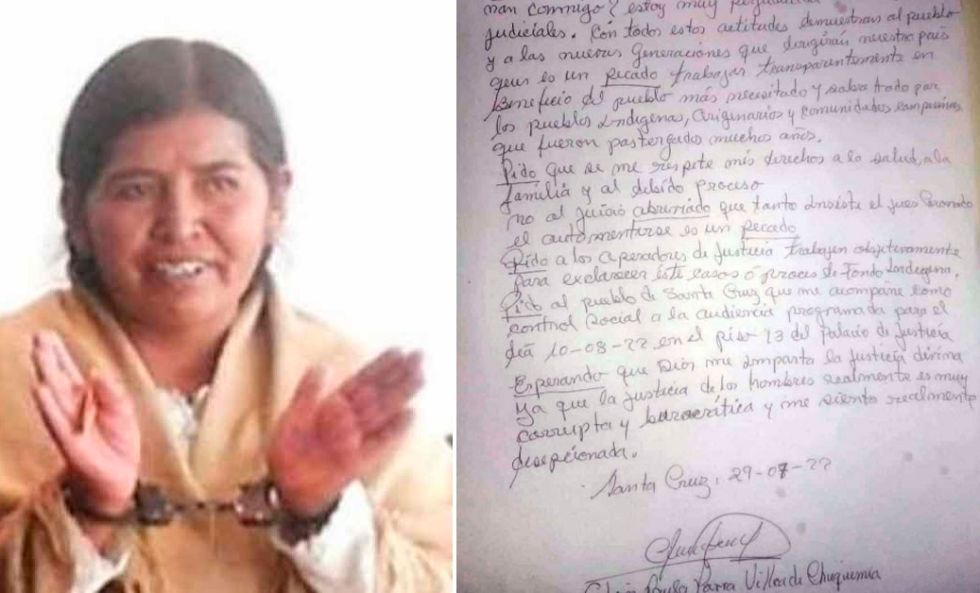 man conmigo? estoy muy
judiciales. Con todos estos actitudes demuestran al pueblo
y a las nuevas Generaciones que dirigirán nuestra país
que es un pecado trabajar transparentemente en
beneficio del pueblo más necesitado y sobre todo par
los pueblos Indígenas, Originarios y comunidades campesinas
que fueron postergados muchos años.
Pido que se me respete mis derechos a la salud, a la
familia y al debido proceso
no al juicio abreviado que tanto insiste el juez
el automentirse es un pecado
Pido a los Operadores de Justicia trabajen objetivamente
para exclarecer este casos ó proces de Fondo Indegena.
Pido al pueblo de Santa Cruz, que me acompañe como
control social a la audiencia programada para el
día 10-08-22 en el piso 13 del Palacio de Justicia
Esperando que Dios me imparta la justicia divina
ya que la justicia de los hombres realmente es muy
corrupta y burocrática y me siento realmente
desepcionada.
Santa Cruz, 29-07-22
Parra Villca de Chuquimia